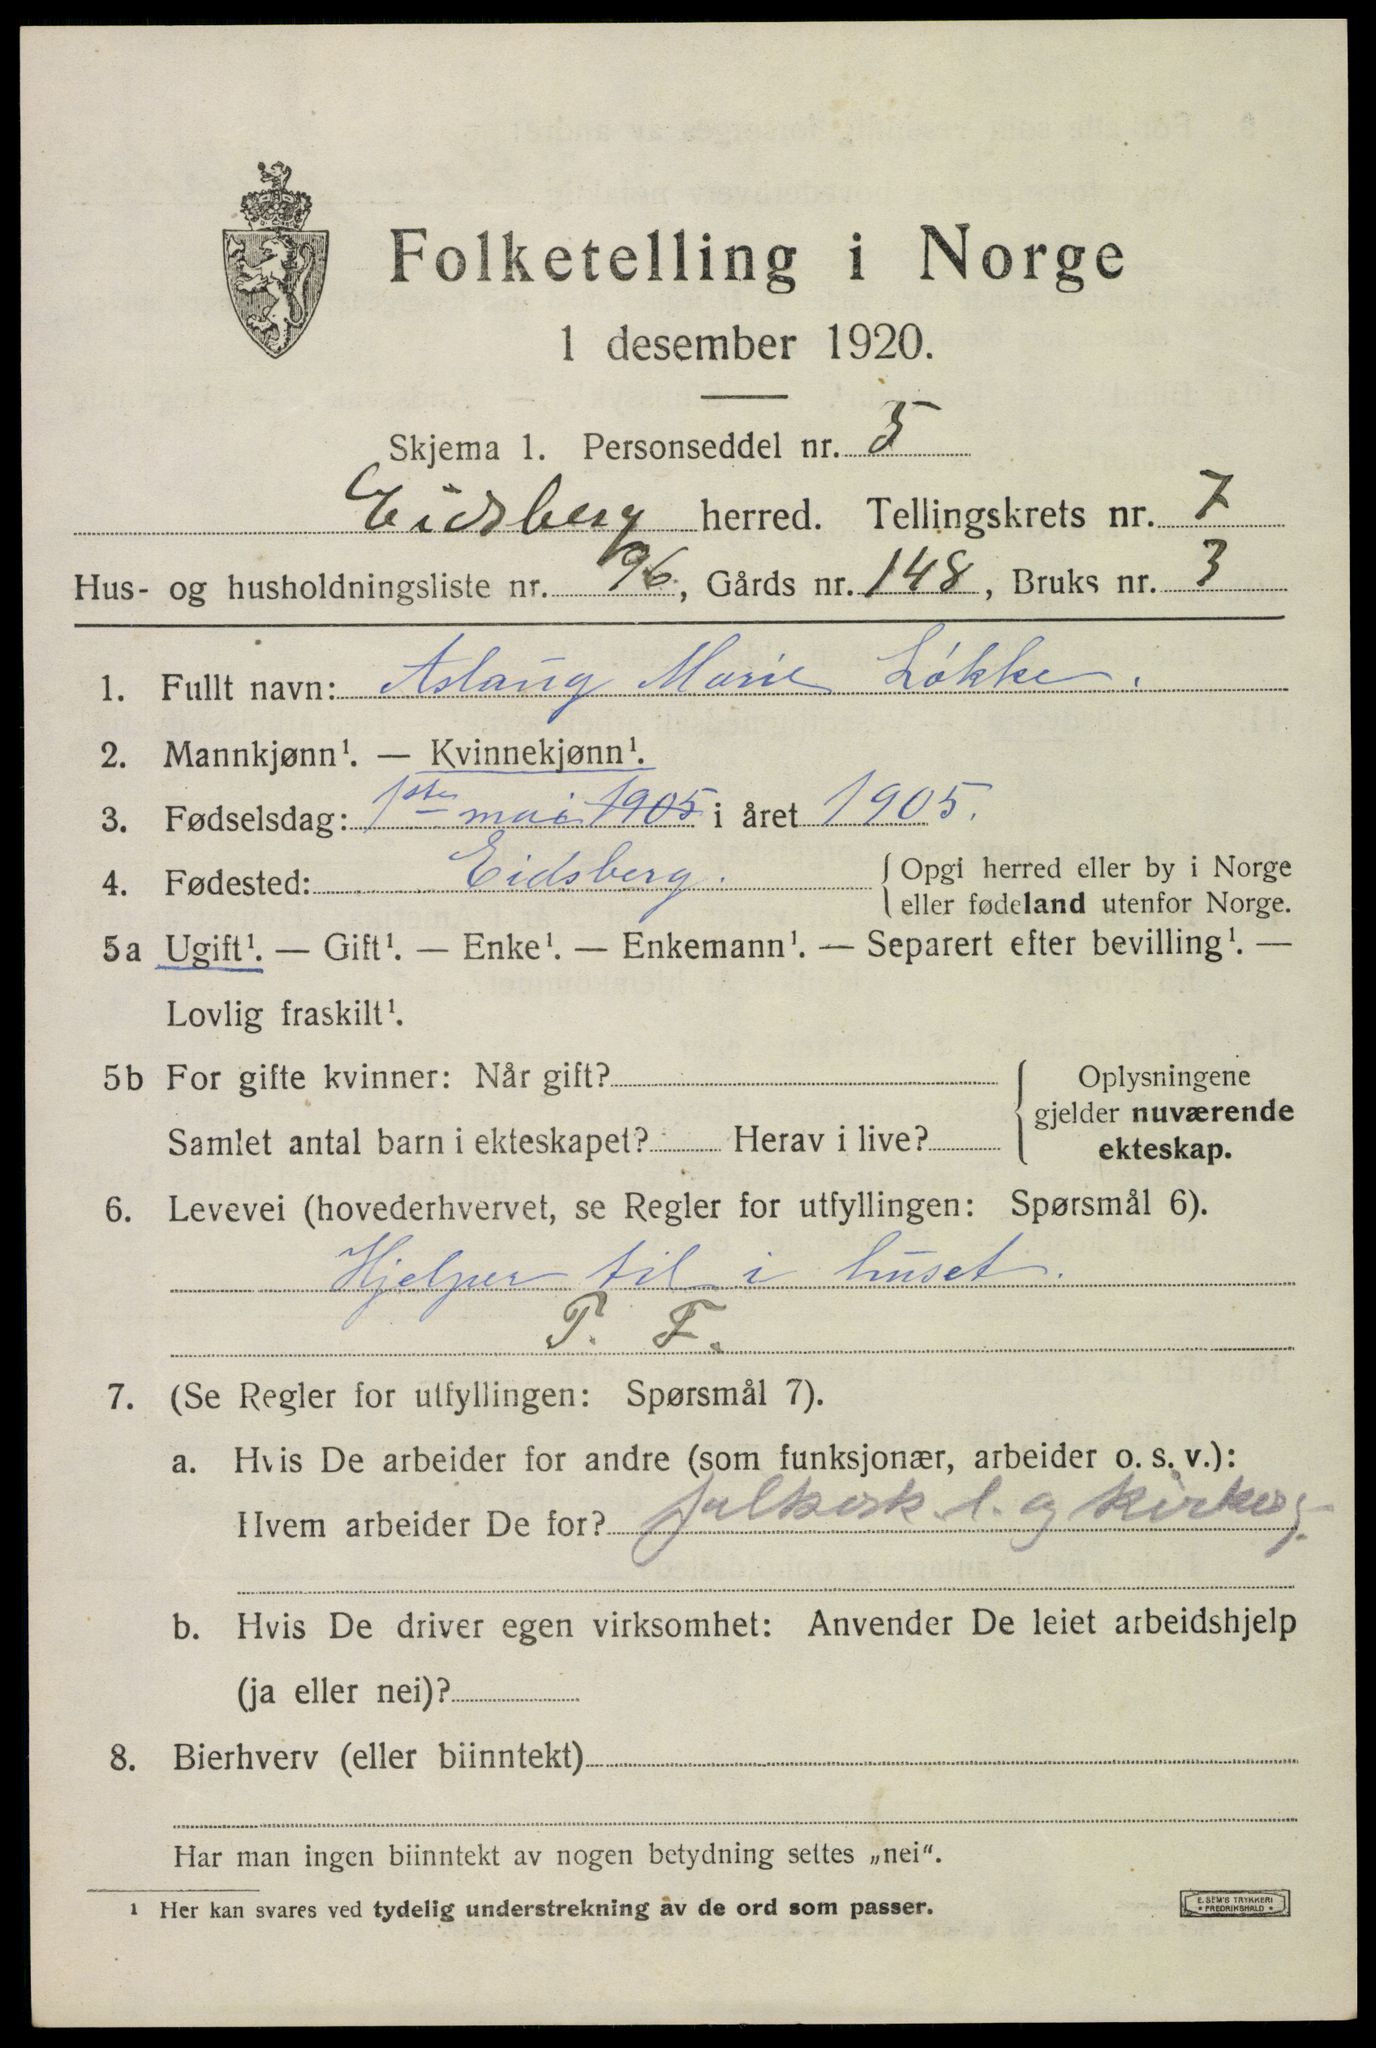 Folketelling i Norge
1 desember 1920.
Skjema 1. Personseddel nr. 5
Eidsberg herred. Tellingskrets nr. 7
Hus- og husholdningsliste nr. 96, Gårds nr. 148, Bruks nr. 3
1. Fullt navn: Aslaug Marie Løkke.
2. Mannkjønn¹. — Kvinnekjønn¹.
3. Fødselsdag: 1ste mai 1905 i året 1905.
4. Fødested: Eidsberg. { Opgi herred eller by i Norge
eller fødeland utenfor Norge.
5a Ugift¹. — Gift¹. — Enke¹. — Enkemann¹. — Separert efter bevilling¹. —
Lovlig fraskilt¹.
5b For gifte kvinner: Når gift? { Oplysningene
gjelder nuværende
Samlet antal barn i ekteskapet? Herav i live? ekteskap.
6. Levevei (hovederhvervet, se Regler for utfyllingen: Spørsmål 6).
Hjelper til i huset.
T. F.
7. (Se Regler for utfyllingen: Spørsmål 7).
a. Hvis De arbeider for andre (som funksjonær, arbeider o. s. v.):
Hvem arbeider De for? l. og kirkes.
b. Hvis De driver egen virksomhet: Anvender De leiet arbeidshjelp
(ja eller nei)?
8. Bierhverv (eller biinntekt)
Har man ingen biinntekt av nogen betydning settes „nei“.
¹ Her kan svares ved tydelig understrekning av de ord som passer.
E. SEM'S TRYKKERI
FREDRIKSHALD